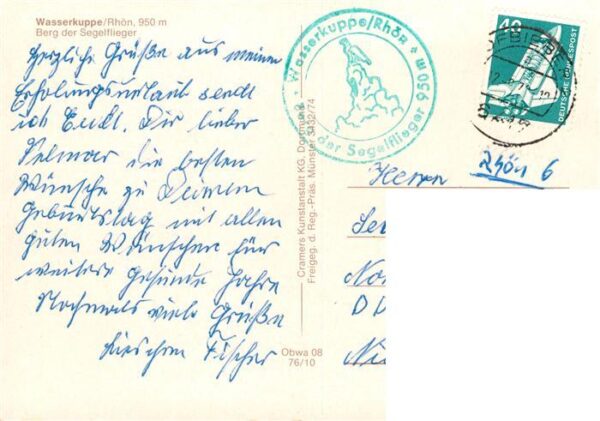 Wasserkuppe/Rhön, 950 m
Berg der Segelflieger
Herzliche Grüße aus meinem
Erholungsurlaub sendt
ich Euch. Dir lieber
Velmar die besten
Wünsche zu Deinem
Geburtstag mit allen
guten Wünschen für
weitere gesunde Jahre
Nochmals viele Grüße
Lieschen Fischer
Obwa 08
76/10
Cramers Kunstanstalt KG, Dortmund
Freigeg. d. Reg.-Präs. Münster 3432/74
Wasserkuppe/Rhön
der Segelflieger 950 m
40
DEUTSCHE BUNDESPOST
Herren
Rhön 6